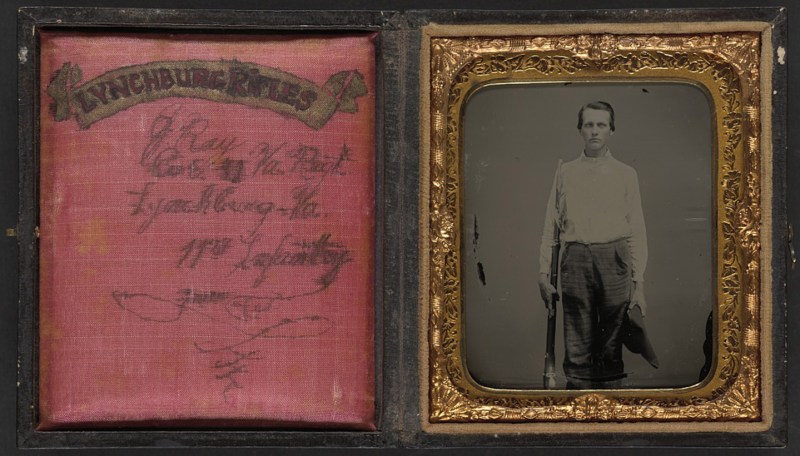 LYNCHBURG RIFLES
J Ray
Co. E 11 Va. Regt.
Lynchburg-Va.
11th Infantry